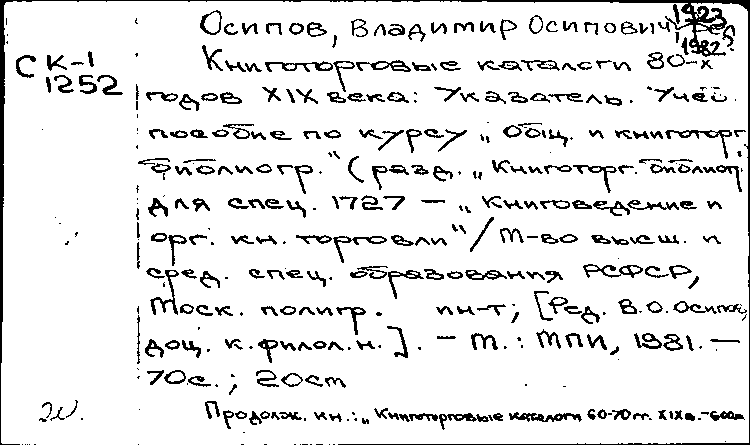 Осипов, Владимир Осипович 1923
1982?
СК-1
1252
Книготорговые каталоги 80-х
годов XIX века: Указатель. Учеб.
пособие по курсу „Общ. и книготорг.
библиогр." (разд. „Книготорг. библиогр."
для спец. 1727 – „Книговедение и
орг. кн. торговли"/ М-во высш. и
сред. спец. образования РСФСР,
Моск. полигр. ин-т; [Ред. В.О. Осипов,
доц. к. филол. н.]. – М.: МПИ, 1981. –
70с.; 20см
Продолж. кн.: „Книготорговые каталоги 60-70 гг. XIX в.